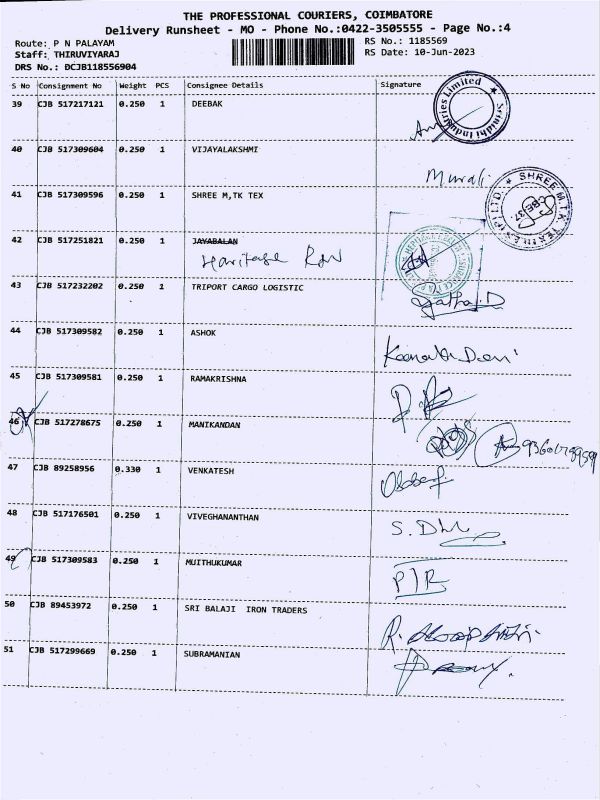 THE PROFESSIONAL COURIERS, COIMBATORE
Delivery Runsheet - MO - Phone No.:0422-3505555 - Page No.:4
Route: P N PALAYAM RS No.: 1185569
Staff: THIRUVIYARAJ RS Date: 10-Jun-2023
DRS No.: DCJB118556904
S No Consignment No Weight PCS Consignee Details Signature
39 CJB 517217121 0.250 1 DEEBAK
Srinidhi Industries Limited
40 CJB 517309604 0.250 1 VIJAYALAKSHMI
Murali
41 CJB 517309596 0.250 1 SHREE M,TK TEX
SHREE M.T.K. TEXTILES (P) LTD.
CBE-37.
42 CJB 517251821 0.250 1 JAYABALAN
Haritage
43 CJB 517232202 0.250 1 TRIPORT CARGO LOGISTIC
44 CJB 517309582 0.250 1 ASHOK
45 CJB 517309581 0.250 1 RAMAKRISHNA
46 CJB 517278675 0.250 1 MANIKANDAN
47 CJB 89258956 0.330 1 VENKATESH
48 CJB 517176501 0.250 1 VIVEGHANANTHAN
49 CJB 517309583 0.250 1 MUITHUKUMAR
50 CJB 89453972 0.250 1 SRI BALAJI IRON TRADERS
51 CJB 517299669 0.250 1 SUBRAMANIAN